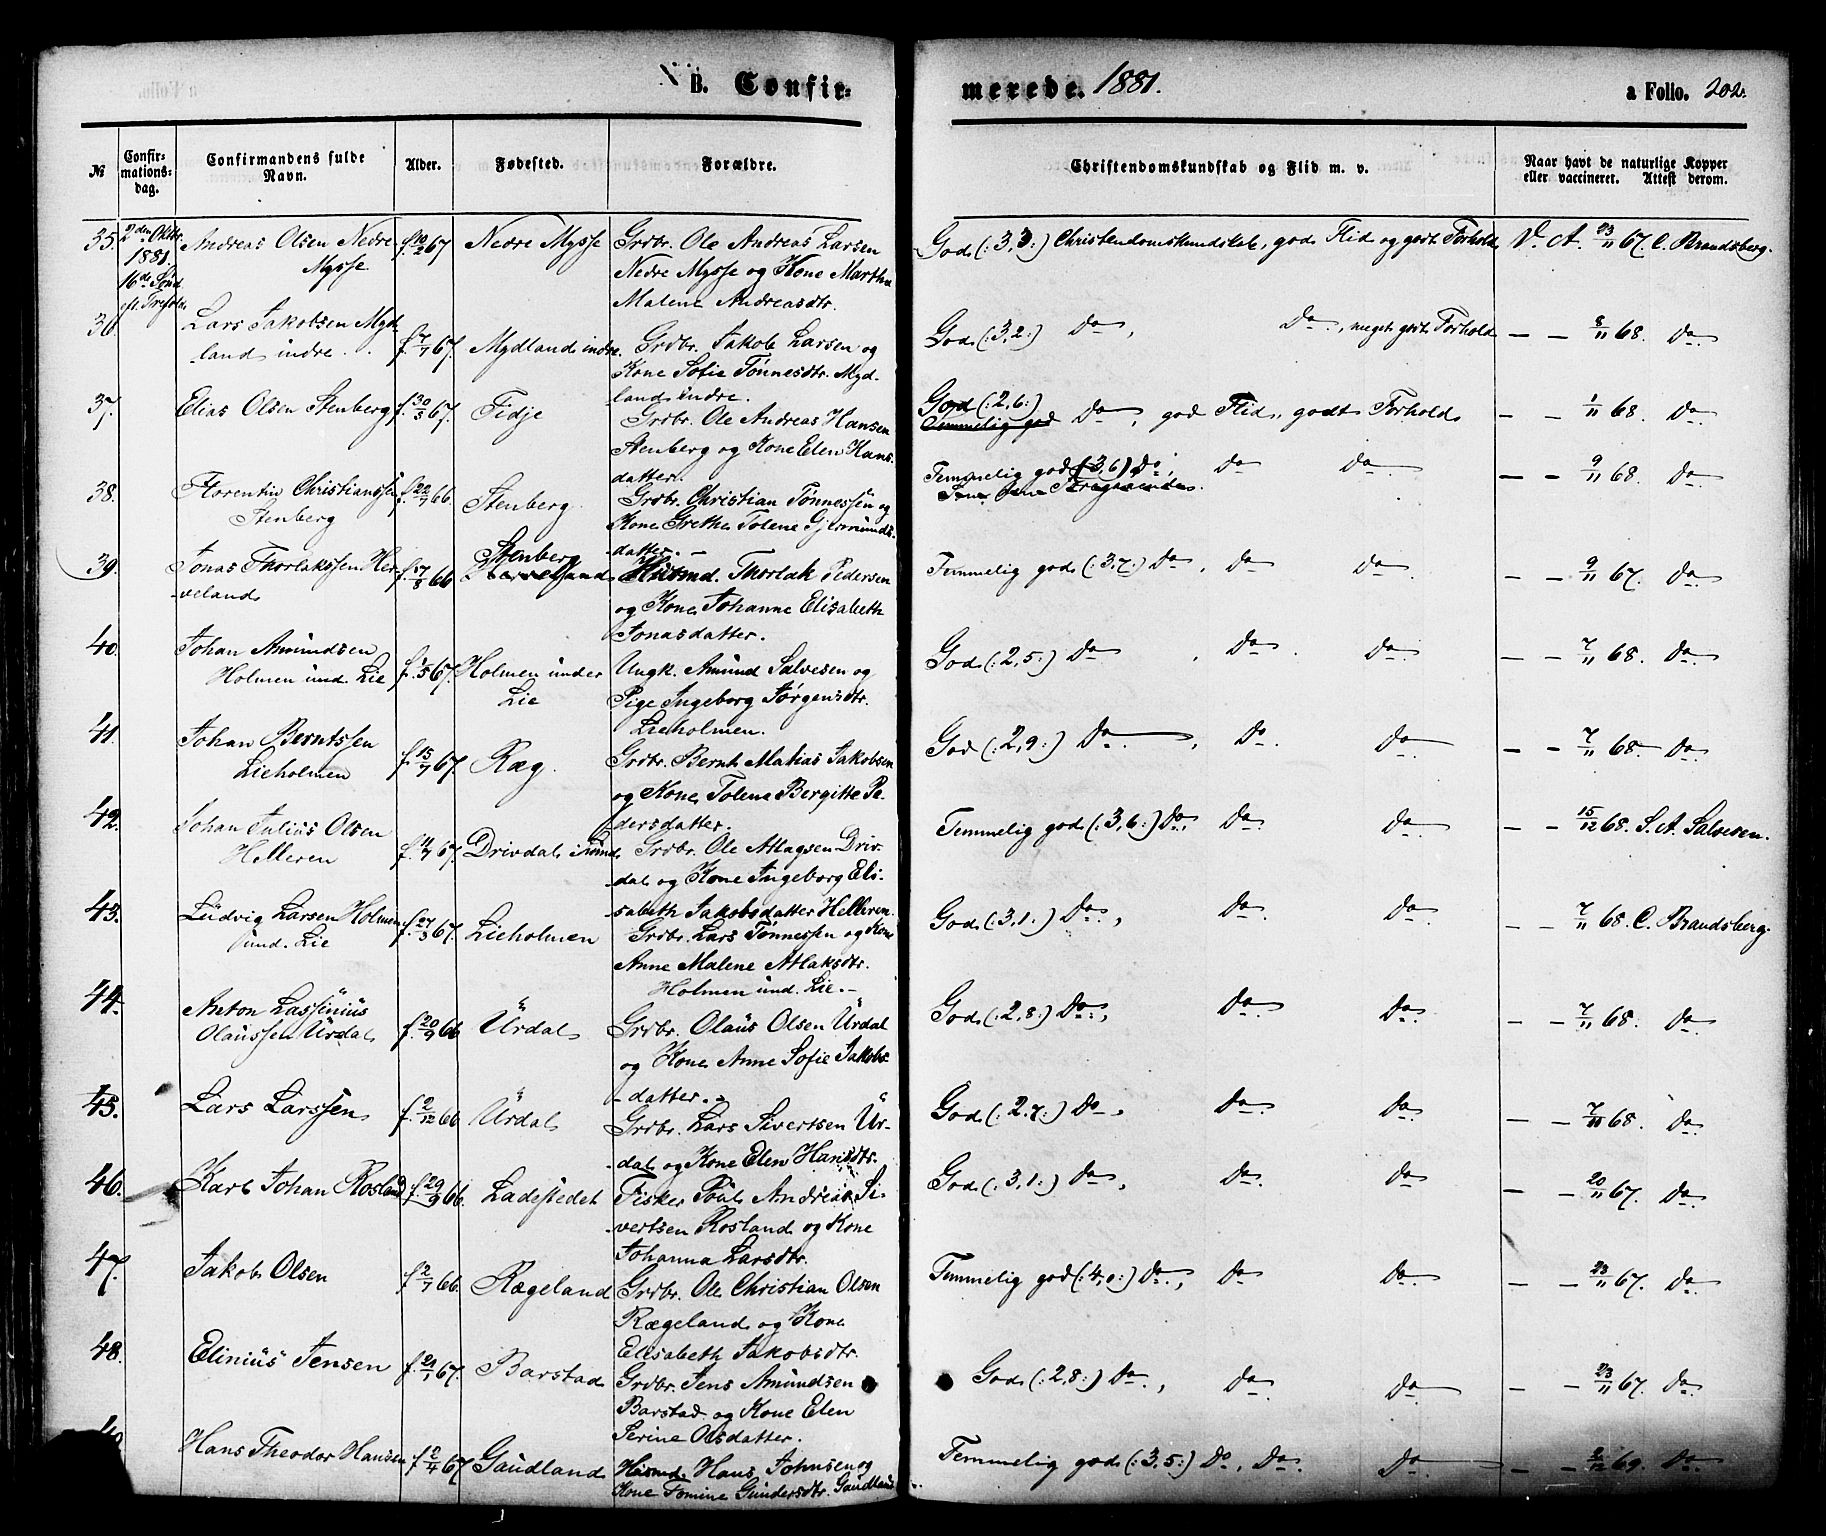 B. Confir-
merede. 1881.
a Folio. 202.
№
Confir-
mations-
dag.
Confirmandens fulde
Navn.
Alder.
Fødested.
Forældre.
Christendomskundskab og Flid m. v.
Naar havt de naturlige Kopper
eller vaccineret. Attest derom.
35. 2den Oktbr. 1881. 16de Sønd. eft. Trefold. Andreas Olsen Nedre f. 10/2 67 Nedre Mysse Grdbr. Ole Andreas Larsen God (: 3,3 :) Christendomskundskab, god Flid og godt Forhold V. A. 23/11 67. C. Brandsberg.
Mysse Nedre Mysse og Kone Marthe
Malene Andreasdtr.
36. Lars Jakobsen Myd- f. 7/7 67. Mydland indre. Grdbr. Jakob Larsen og God (: 3,2 :) Do, Do, meget godt Forhold — — 8/11 68. Do
land indre. Kone Sofie Tønnesdtr. Myd-
land indre.
37. Elias Olsen Stenberg f. 30/3 67. Fidje Grdbr. Ole Andreas Hansen God (: 2,6 :) Do, god Flid, godt Forhold — — 1/11 68. Do
Temmelig god
Stenberg og Kone Elen Hans-
datter.
38. Florentin Christianssen f. 22/7 66. Stenberg Grdbr. Christian Tønnessen og Temmelig god (: 3,6) Do, Do Do — — 9/11 68. Do
Stenberg Kone Grethe Tolene Gjermunds-
datter. —
39. Jonas Thorlakssen Her- f. 17/8 66 Stenberg Husmd. Thorlak Pedersen Temmelig god (: 3,7 :) Do, Do Do — — 9/11 67. Do
veland og Kone Johanne Elisabeth
Jonasdatter.
40. Johan Amundsen f. 1/5 67. Holmen under Ungk. Amund Salvesen og God (: 2,5 :) Do, Do. Do — — 7/11 68. Do
Holmen und. Lie Lie Pige Ingeborg Jørgensdtr.
Lieholmen.
41. Johan Berntssen f. 15/7 67. Ræg. Grdbr. Bernt Matias Jakobsen God (: 2,9 :) Do, Do. Do — — 7/11 68 Do
Lieholmen og Kone Tolene Bergitte Pe-
dersdatter.
42. Johan Julius Olsen f. 11/7 67. Drivdal i Sund Grdbr. Ole Atlagsen Driv- Temmelig god (: 3,6 :) Do, Do. Do — — 15/12 68. S. A. Salvesen.
Helleren dal og Kone Ingeborg Eli-
sabeth Jakobsdatter Helleren.
43. Ludvig Larsen Holmen f. 27/3 67. Lieholmen Grdbr. Lars Tønnessen og Kone God (: 3,1 :) Do, Do Do — — 7/11 68. C. Brandsberg.
und. Lie Anne Malene Atlaksdtr.
Holmen und. Lie. —
44. Anton Lassinius f. 20/9 66 Urdal Grdbr. Olaus Olsen Urdal God (: 2,8 :) Do, Do. Do — — 7/11 68. Do
Olaussen Urdal og Kone Anne Sofie Jakobs-
datter. —
45. Lars Larssen f. 2/12 66 Urdal Grdbr. Lars Sivertsen Ur- God (: 2,7 :) Do, Do. Do — — 7/11 68. Do
dal og Kone Elen Hansdtr.
46. Karl Johan Rosland f. 29/9 66. Ladestedet Fisker Poul Andreas Si- God (: 3,1 :) Do, Do Do — — 20/11 67. Do
vertsen Rosland og Kone
Johanna Larsdtr.
47. Jakob Olsen f. 2/7 66. Rægeland Grdbr. Ole Christian Olsen Temmelig god (: 4,0 :) Do, Do Do — — 23/11 67. Do
Rægeland og Kone
Elisabeth Jakobsdtr.
48. Elinius Jensen f. 21/1 67. Barstad Grdbr. Jens Amundsen God (: 2,8 :) Do, Do Do — — 23/11 67. Do
Barstad og Kone Elen
Serine Olsdatter.
Hans Theodor Hansen f. 2/4 67 Gaudland Husmd. Hans Johnsen og Temmelig god (: 3,5 :) Do, Do. Do — — 2/12 69. Do
Kone Tomine Gundersdtr. Gaudland